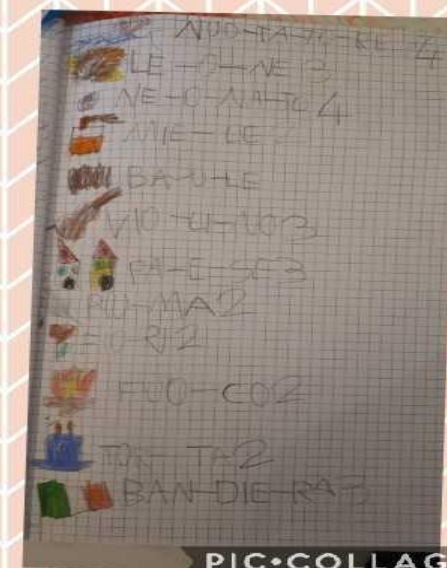 NUO-TA-TO-RE 4
LE-O-NE 3
NE-O-NA-TO 4
MIE-LE 2
BA-U-LE
VIO-LI-NO 3
PA-E-SE 3
RO-MA 2
FIO-RI 2
FUO-CO 2
TOR-TA 2
BAN-DIE-RA 3
PIC•COLLAG